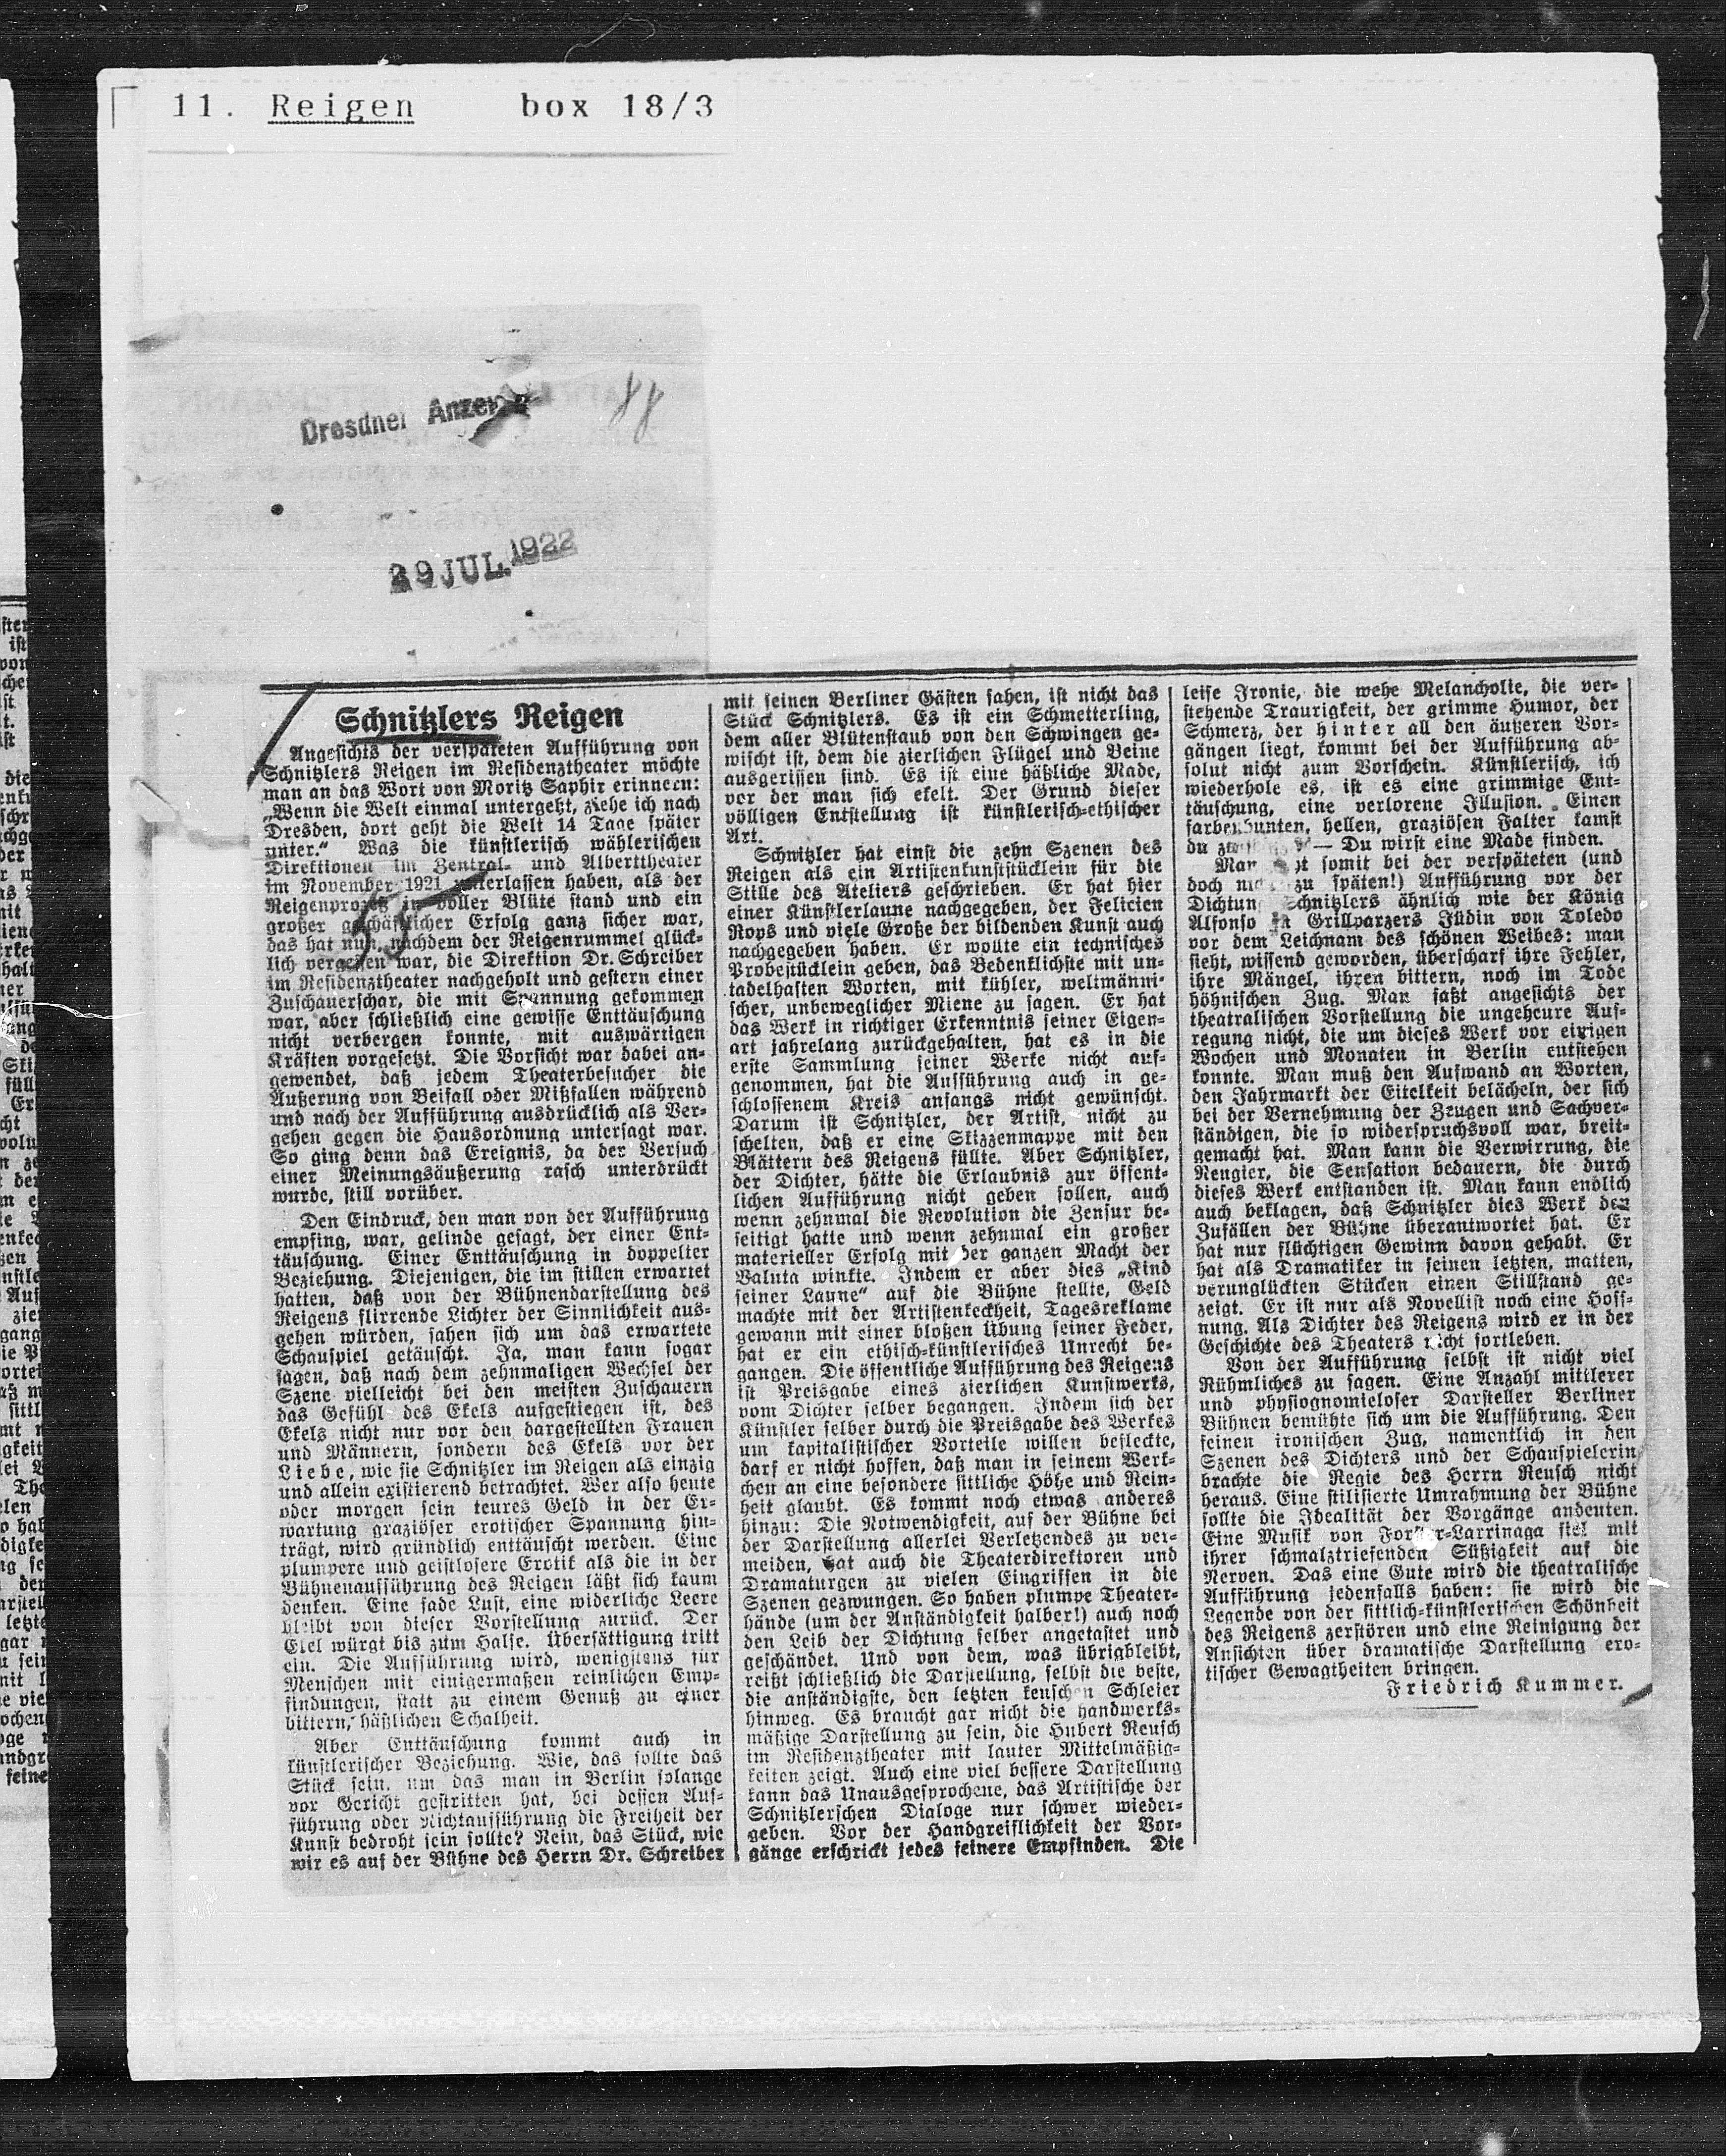 11. Reigen box 18/3
Dresdner Anzei
88
29 JUL. 1922
Schnitzlers Reigen
Angesichts der verspäteten Aufführung von
Schnitzlers Reigen im Residenztheater möchte
man an das Wort von Moritz Saphir erinnern:
„Wenn die Welt einmal untergeht, ziehe ich nach
Dresden, dort geht die Welt 14 Tage später
unter.“ Was die künstlerisch wählerischen
Direktionen im Zentral- und Alberttheater
im November 1921 unterlassen haben, als der
Reigenprozeß in voller Blüte stand und ein
großer geschäftlicher Erfolg ganz sicher war,
das hat nun, nachdem der Reigenrummel glück-
lich vergessen war, die Direktion Dr. Schreiber
im Residenztheater nachgeholt und gestern einer
Zuschauerschar, die mit Spannung gekommen
war, aber schließlich eine gewisse Enttäuschung
nicht verbergen konnte, mit auswärtigen
Kräften vorgesetzt. Die Vorsicht war dabei an-
gewendet, daß jedem Theaterbesucher die
Äußerung von Beifall oder Mißfallen während
und nach der Aufführung ausdrücklich als Ver-
gehen gegen die Hausordnung untersagt war.
So ging denn das Ereignis, da der Versuch
einer Meinungsäußerung rasch unterdrückt
wurde, still vorüber.
Den Eindruck, den man von der Aufführung
empfing, war, gelinde gesagt, der einer Ent-
täuschung. Einer Enttäuschung in doppelter
Beziehung. Diejenigen, die im stillen erwartet
hatten, daß von der Bühnendarstellung des
Reigens flirrende Lichter der Sinnlichkeit aus-
gehen würden, sahen sich um das erwartete
Schauspiel getäuscht. Ja, man kann sogar
sagen, daß nach dem zehnmaligen Wechsel der
Szene vielleicht bei den meisten Zuschauern
das Gefühl des Ekels aufgestiegen ist, des
Ekels nicht nur vor den dargestellten Frauen
und Männern, sondern des Ekels vor der
Liebe, wie sie Schnitzler im Reigen als einzig
und allein existierend betrachtet. Wer also heute
oder morgen sein teures Geld in der Er-
wartung graziöser erotischer Spannung hin-
trägt, wird gründlich enttäuscht werden. Eine
plumpere und geistlosere Erotik als die in der
Bühnenaufführung des Reigen läßt sich kaum
denken. Eine fade Lust, eine widerliche Leere
bleibt von dieser Vorstellung zurück. Der
Ekel würgt bis zum Halse. Übersättigung tritt
ein. Die Aufführung wird, wenigstens für
Menschen mit einigermaßen reinlichen Emp-
findungen, statt zu einem Genuß zu einer
bittern, häßlichen Schalheit.
Aber Enttäuschung kommt auch in
künstlerischer Beziehung. Wie, das sollte das
Stück sein, um das man in Berlin solange
vor Gericht gestritten hat, bei dessen Auf-
führung oder Nichtaufführung die Freiheit der
Kunst bedroht sein sollte? Nein, das Stück, wie
wir es auf der Bühne des Herrn Dr. Schreiber
mit seinen Berliner Gästen sahen, ist nicht das
Stück Schnitzlers. Es ist ein Schmetterling,
dem aller Blütenstaub von den Schwingen ge-
wischt ist, dem die zierlichen Flügel und Beine
ausgerissen sind. Es ist eine häßliche Made,
vor der man sich ekelt. Der Grund dieser
völligen Entstellung ist künstlerisch-ethischer
Art.
Schnitzler hat einst die zehn Szenen des
Reigen als ein Artistenkunststücklein für die
Stille des Ateliers geschrieben. Er hat hier
einer Künstlerlaune nachgegeben, der Felicien
Rops und viele Große der bildenden Kunst auch
nachgegeben haben. Er wollte ein technisches
Probestücklein geben, das Bedenklichste mit un-
tadelhaften Worten, mit kühler, weltmänni-
scher, unbeweglicher Miene zu sagen. Er hat
das Werk in richtiger Erkenntnis seiner Eigen-
art jahrelang zurückgehalten, hat es in die
erste Sammlung seiner Werke nicht auf-
genommen, hat die Aufführung auch in ge-
schlossenem Kreis anfangs nicht gewünscht.
Darum ist Schnitzler, der Artist, nicht zu
schelten, daß er eine Skizzenmappe mit den
Blättern des Reigens füllte. Aber Schnitzler,
der Dichter, hätte die Erlaubnis zur öffent-
lichen Aufführung nicht geben sollen, auch
wenn zehnmal die Revolution die Zensur be-
seitigt hatte und wenn zehnmal ein großer
materieller Erfolg mit der ganzen Macht der
Valuta winkte. Indem er aber dies „Kind
seiner Laune“ auf die Bühne stellte, Geld
machte mit der Artistenkeckheit, Tagesreklame
gewann mit einer bloßen Übung seiner Feder,
hat er ein ethisch-künstlerisches Unrecht be-
gangen. Die öffentliche Aufführung des Reigens
ist Preisgabe eines zierlichen Kunstwerks,
vom Dichter selber begangen. Indem sich der
Künstler selber durch die Preisgabe des Werkes
um kapitalistischer Vorteile willen befleckte,
darf er nicht hoffen, daß man in seinem Werk-
chen an eine besondere sittliche Höhe und Rein-
heit glaubt. Es kommt noch etwas anderes
hinzu: Die Notwendigkeit, auf der Bühne bei
der Darstellung allerlei Verletzendes zu ver-
meiden, hat auch die Theaterdirektoren und
Dramaturgen zu vielen Eingriffen in die
Szenen gezwungen. So haben plumpe Theater-
hände (um der Anständigkeit halber!) auch noch
den Leib der Dichtung selber angetastet und
geschändet. Und von dem, was übrigbleibt,
reißt schließlich die Darstellung, selbst die beste,
die anständigste, den letzten keuschen Schleier
hinweg. Es braucht gar nicht die handwerks-
mäßige Darstellung zu sein, die Hubert Reusch
im Residenztheater mit lauter Mittelmäßig-
keiten zeigt. Auch eine viel bessere Darstellung
kann das Unausgesprochene, das Artistische der
Schnitzlerschen Dialoge nur schwer wieder-
geben. Vor der Handgreiflichkeit der Vor-
gänge erschrickt jedes feinere Empfinden. Die
leise Ironie, die wehe Melancholie, die ver-
stehende Traurigkeit, der grimme Humor, der
Schmerz, der hinter all den äußeren Vor-
gängen liegt, kommt bei der Aufführung ab-
solut nicht zum Vorschein. Künstlerisch, ich
wiederhole es, ist es eine grimmige Ent-
täuschung, eine verlorene Illusion. Einen
farbenbunten, hellen, graziösen Falter kamst
du — Du wirst eine Made finden.
Man somit bei der verspäteten (und
doch zu späten!) Aufführung vor der
Dichtung Schnitzlers ähnlich wie der König
Alfonso in Grillparzers Jüdin von Toledo
vor dem Leichnam des schönen Weibes: man
sieht, wissend geworden, überscharf ihre Fehler,
ihre Mängel, ihren bittern, noch im Tode
höhnischen Zug. Man faßt angesichts der
theatralischen Vorstellung die ungeheure Auf-
regung nicht, die um dieses Werk vor einigen
Wochen und Monaten in Berlin entstehen
konnte. Man muß den Aufwand an Worten,
den Jahrmarkt der Eitelkeit belächeln, der sich
bei der Vernehmung der Zeugen und Sachver-
ständigen, die so widerspruchsvoll war, breit-
gemacht hat. Man kann die Verwirrung, die
Neugier, die Sensation bedauern, die durch
dieses Werk entstanden ist. Man kann endlich
auch beklagen, daß Schnitzler dies Werk den
Zufällen der Bühne überantwortet hat. Er
hat nur flüchtigen Gewinn davon gehabt. Er
hat als Dramatiker in seinen letzten, matten,
verunglückten Stücken einen Stillstand ge-
zeigt. Er ist nur als Novellist noch eine Hoff-
nung. Als Dichter des Reigens wird er in der
Geschichte des Theaters nicht fortleben.
Von der Aufführung selbst ist nicht viel
Rühmliches zu sagen. Eine Anzahl mittlerer
und physiognomieloser Darsteller Berliner
Bühnen bemühte sich um die Aufführung. Den
feinen ironischen Zug, namentlich in den
Szenen des Dichters und der Schauspielerin
brachte die Regie des Herrn Reusch nicht
heraus. Eine stilisierte Umrahmung der Bühne
sollte die Idealität der Vorgänge andeuten.
Eine Musik von Forster-Larrinaga fiel mit
ihrer schmalztriefenden Süßigkeit auf die
Nerven. Das eine Gute wird die theatralische
Aufführung jedenfalls haben: sie wird die
Legende von der sittlich-künstlerischen Schönheit
des Reigens zerstören und eine Reinigung der
Ansichten über dramatische Darstellung ero-
tischer Gewagtheiten bringen.
Friedrich Kummer.